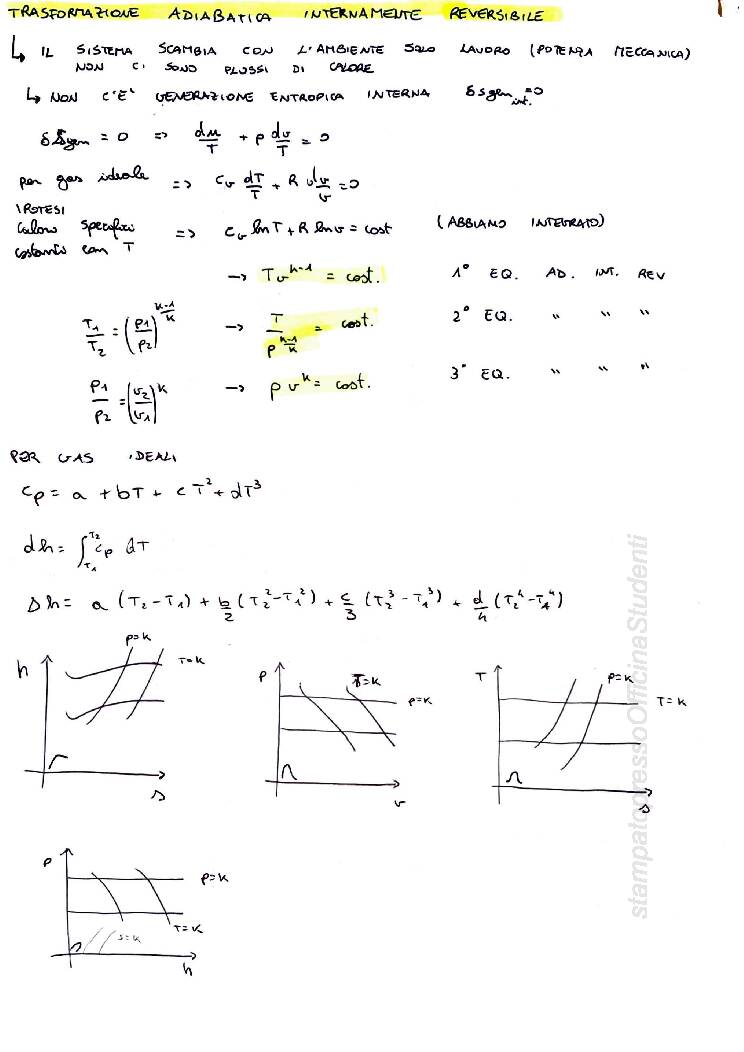 TRASFORMAZIONE ADIABATICA INTERNAMENTE REVERSIBILE
↳ IL SISTEMA SCAMBIA CON L'AMBIENTE SOLO LAVORO (POTENZA MECCANICA)
NON CI SONO FLUSSI DI CALORE
↳ NON C'E' GENERAZIONE ENTROPICA INTERNA δsgen int. = 0
δSgen = 0 => du/T + p dv/T = 0
per gas ideale => cv dT/T + R dv/v = 0
IPOTESI
Calori specifici costanti con T => cv ln T + R ln v = cost (ABBIAMO INTEGRATO)
→ T v^(k-1) = cost. 1° EQ. AD. INT. REV
T1/T2 = (p1/p2)^((k-1)/k) → T/p^((k-1)/k) = cost. 2° EQ. " " "
p1/p2 = (v2/v1)^k → p v^k = cost. 3° EQ. " " "
PER GAS IDEALI
cp = a + bT + cT² + dT³
dh = ∫T1^T2 cp dT
Δh = a (T2 - T1) + b/2 (T2² - T1²) + c/3 (T2³ - T1³) + d/4 (T2⁴ - T1⁴)
h p=k T=k s
p T=k p=k v
T p=k T=k s
p p=k T=k s=k h
stampatopressoOfficinaStudenti